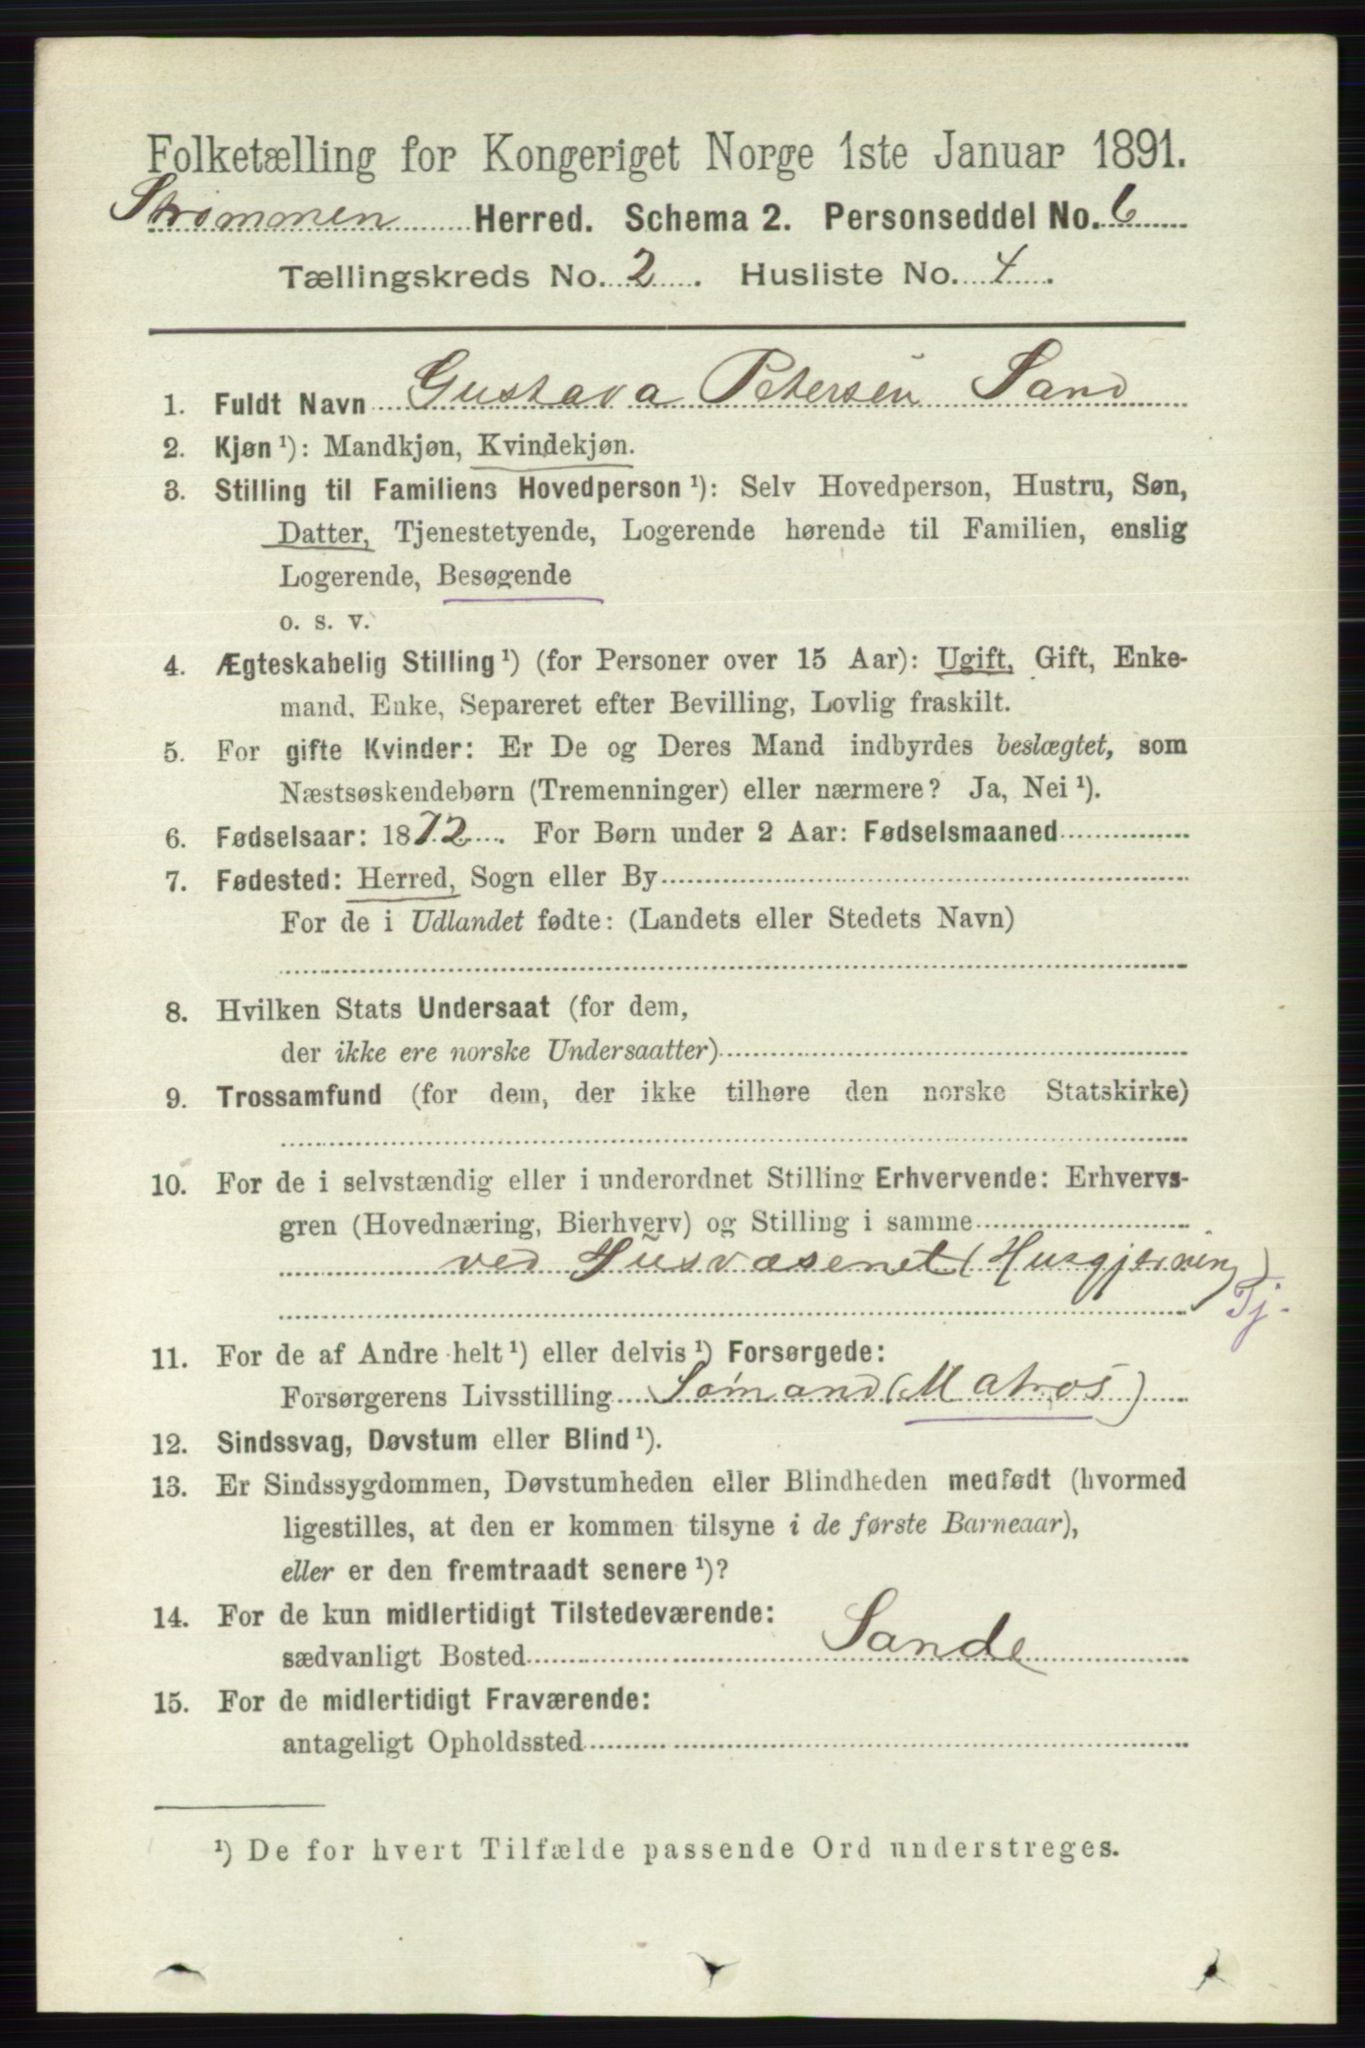 Folketælling for Kongeriget Norge 1ste Januar 1891.
Strømmen Herred. Schema 2. Personseddel No. 6
Tællingskreds No. 2. Husliste No. 4.
1. Fuldt Navn Gustava Petersen Sand
2. Kjøn ¹): Mandkjøn, Kvindekjøn.
3. Stilling til Familiens Hovedperson ¹): Selv Hovedperson, Hustru, Søn,
Datter, Tjenestetyende, Logerende hørende til Familien, enslig
Logerende, Besøgende
o. s. v.
4. Ægteskabelig Stilling ¹) (for Personer over 15 Aar): Ugift, Gift, Enke-
mand, Enke, Separeret efter Bevilling, Lovlig fraskilt.
5. For gifte Kvinder: Er De og Deres Mand indbyrdes beslægtet, som
Næstsøskendebørn (Tremenninger) eller nærmere? Ja, Nei ¹).
6. Fødselsaar: 1872. For Børn under 2 Aar: Fødselsmaaned
7. Fødested: Herred, Sogn eller By
For de i Udlandet fødte: (Landets eller Stedets Navn)
8. Hvilken Stats Undersaat (for dem,
der ikke ere norske Undersaatter)
9. Trossamfund (for dem, der ikke tilhøre den norske Statskirke)
10. For de i selvstændig eller i underordnet Stilling Erhvervende: Erhvervs-
gren (Hovednæring, Bierhverv) og Stilling i samme
ved Husvæsenet (Husgjerning)
Tj.
11. For de af Andre helt ¹) eller delvis ¹) Forsørgede:
Forsørgerens Livsstilling Sømand (Matros)
12. Sindssvag, Døvstum eller Blind ¹).
13. Er Sindssygdommen, Døvstumheden eller Blindheden medfødt (hvormed
ligestilles, at den er kommen tilsyne i de første Barneaar),
eller er den fremtraadt senere ¹)?
14. For de kun midlertidigt Tilstedeværende:
sædvanligt Bosted Sande
15. For de midlertidigt Fraværende:
antageligt Opholdssted
¹) De for hvert Tilfælde passende Ord understreges.